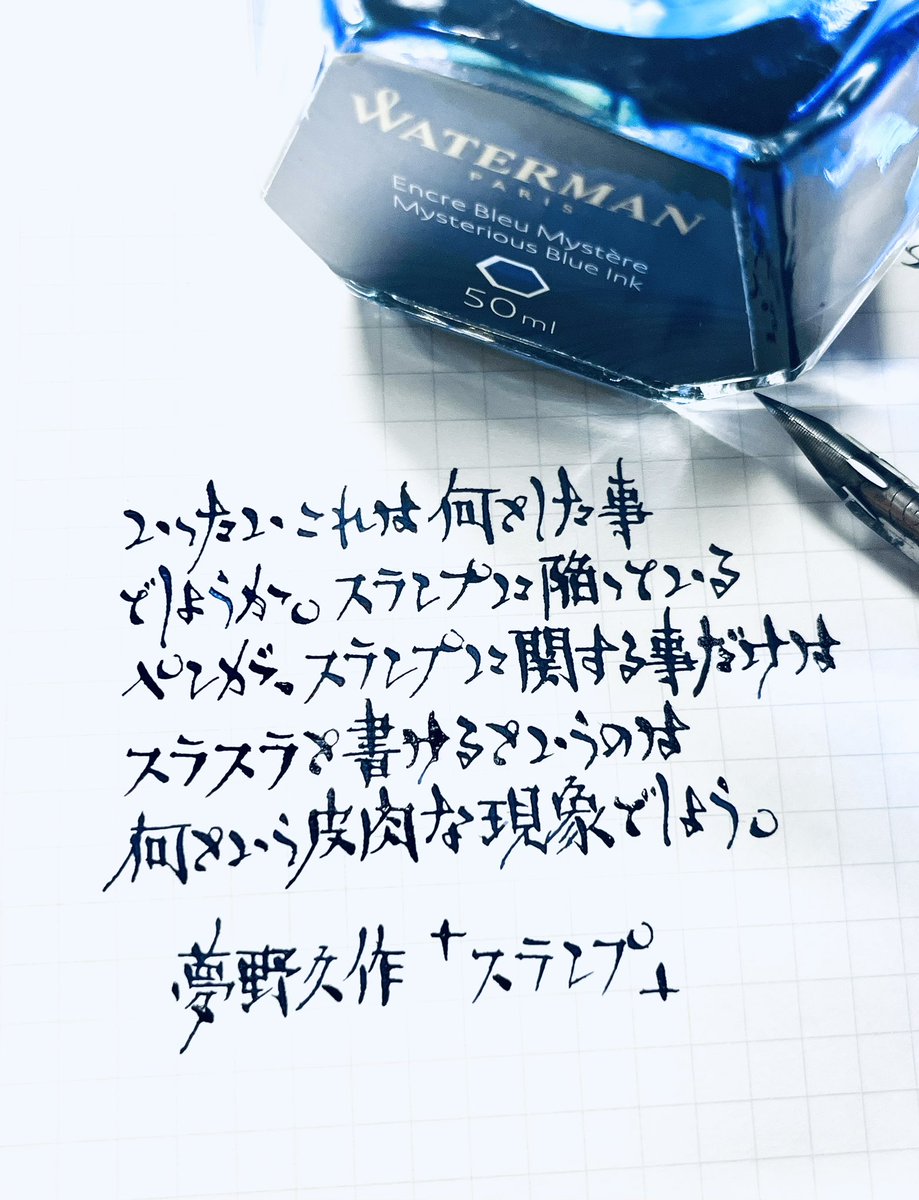 WATERMAN
PARIS
Encre Bleu Mystère
Mysterious Blue Ink
50ml
いったいこれは何とした事
でしょうか。スランプに陥っている
ペンが。スランプに関する事だけは
スラスラと書けるというのは
何という皮肉な現象でしょう。
夢野久作「スランプ」